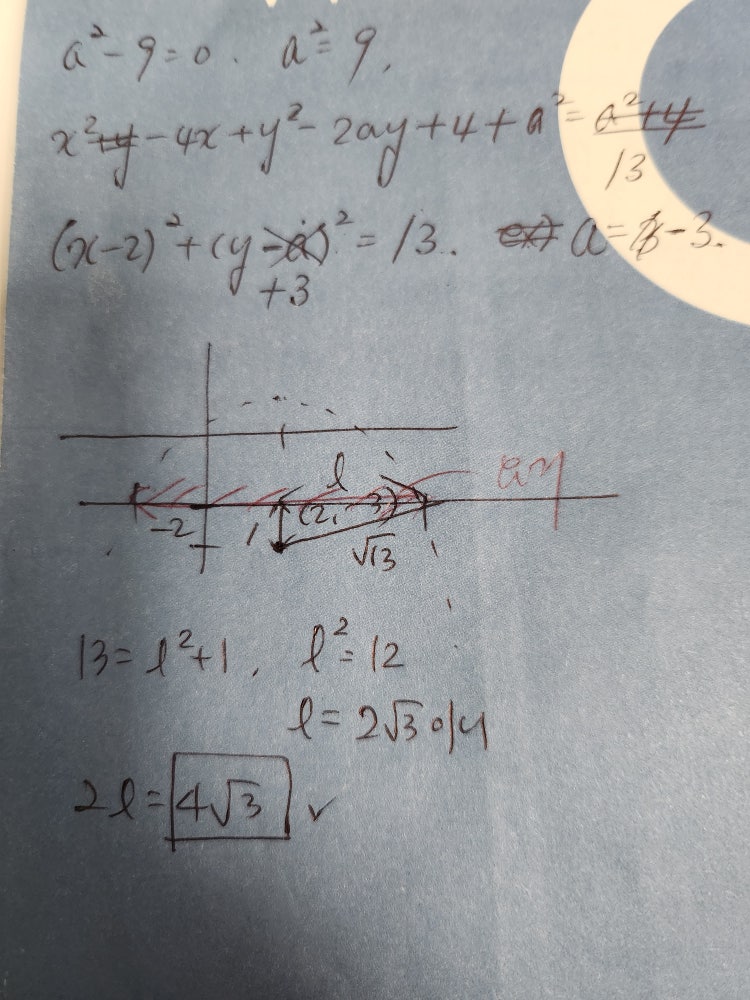 a² - 9 = 0 . a² = 9 .
x² - 4x + y² - 2ay + 4 + a² = 13
(x-2)² + (y+3)² = 13 . a = -3 .
l
-2 1 (2, -3)
√13
13 = l² + 1 , l² = 12
l = 2√3 이니
2l = 4√3 ✓